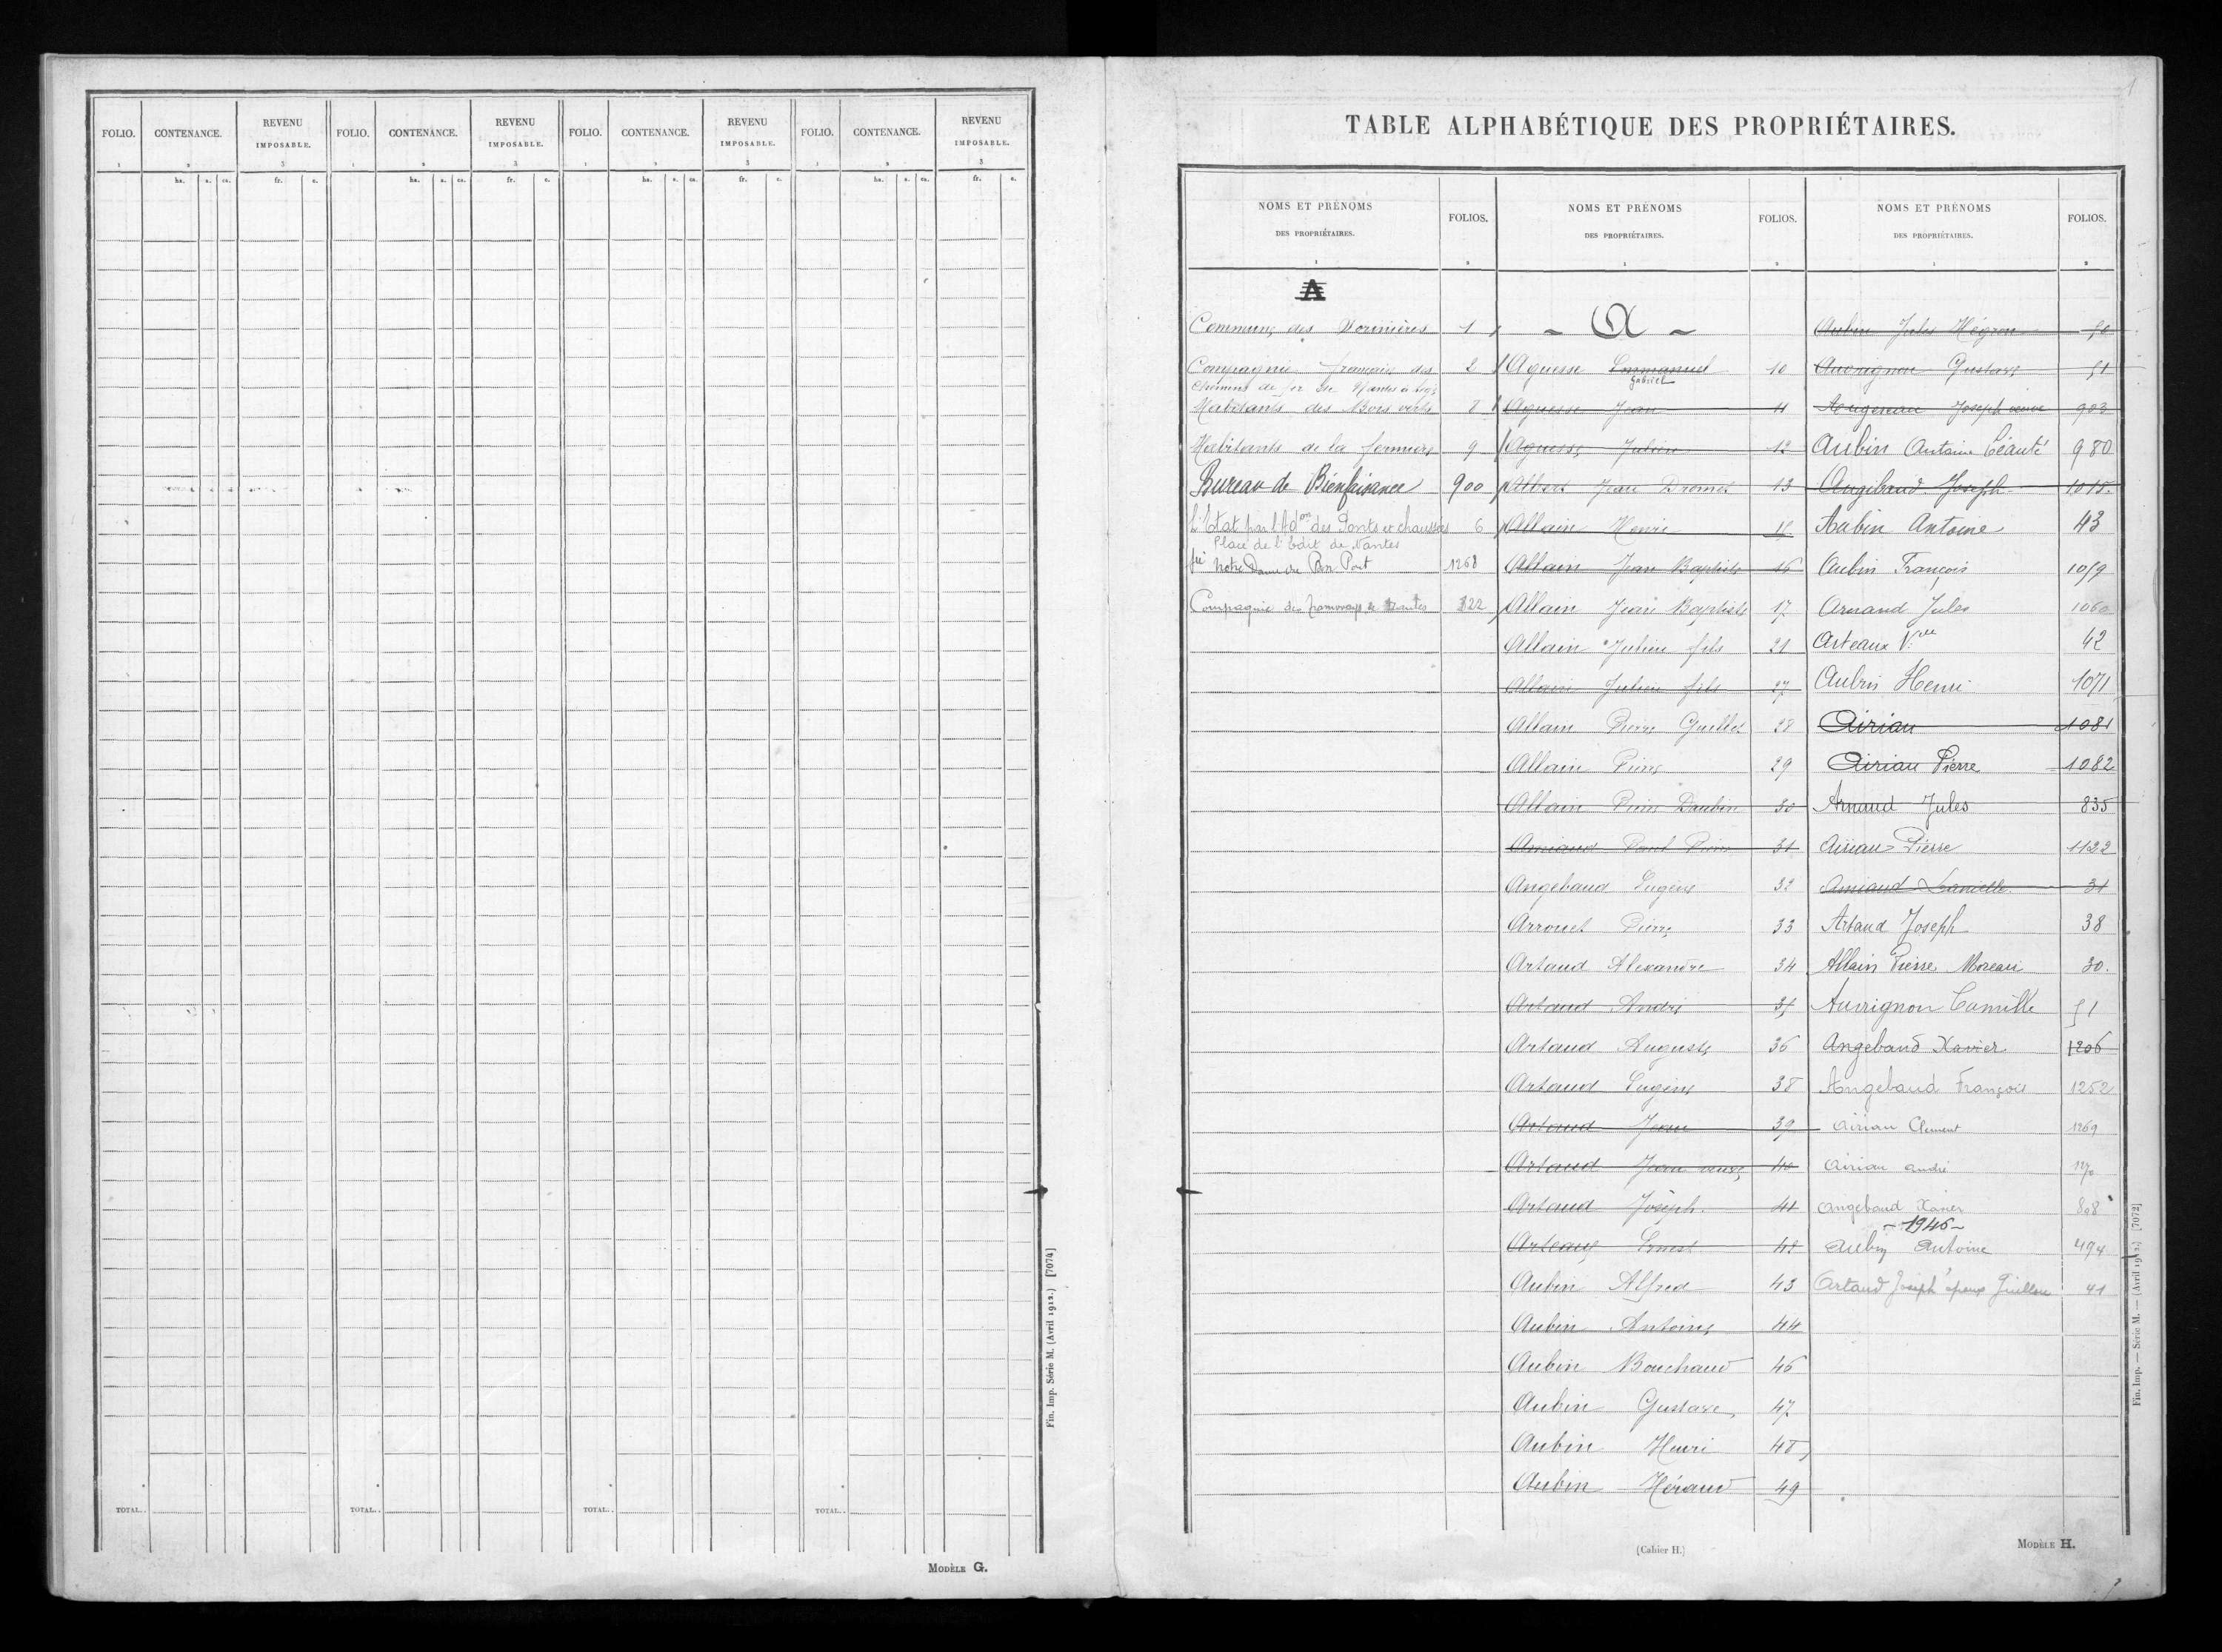 FOLIO. CONTENANCE. REVENU IMPOSABLE. FOLIO. CONTENANCE. REVENU IMPOSABLE. FOLIO. CONTENANCE. REVENU IMPOSABLE. FOLIO. CONTENANCE. REVENU IMPOSABLE.
1 2 3 1 2 3 1 2 3 1 2 3
ha. a. ca. fr. c. ha. a. ca. fr. c. ha. a. ca. fr. c. ha. a. ca. fr. c.
TOTAL.. TOTAL.. TOTAL.. TOTAL..
Fin. Imp. Série M. (Avril 1912.) [7074]
MODÈLE G.
1
TABLE ALPHABÉTIQUE DES PROPRIÉTAIRES.
NOMS ET PRÉNOMS DES PROPRIÉTAIRES. FOLIOS. NOMS ET PRÉNOMS DES PROPRIÉTAIRES. FOLIOS. NOMS ET PRÉNOMS DES PROPRIÉTAIRES. FOLIOS.
1 2 1 2 1 2
A
Commune des Sorinières 1
Compagnie française des 2
chemins de fer de Nantes à Legé
Habitants des Bois verts 8
Habitants de la 9
Bureau de Bienfaisance 900
L'Etat par l'Adon des Ponts et chaussées 6
Place de l'Edit de Nantes
Notre Dame de Bon Port 1268
Compagnie des tramways de Nantes 322
- A -
Aguesse Emmanuel 10
Gabriel
Aguesse Jean 11
Aguesse Julien 12
Albert Jean 13
Allain Henri
Allain Jean Baptiste 16
Allain Jean Baptiste 17
Allain Julien fils 21
Allain Julien fils 27
Allain Pierre Guillot 28
Allain Pierre 29
Allain Pierre Daubin 30
Amiaud Paul Pierre 31
Angebaud Eugène 32
Arrouet Pierre 33
Artaud Alexandre 34
Artaud André 35
Artaud Auguste 36
Artaud Eugène 38
Artaud Jean 39
Artaud Jean veuve 40
Artaud Joseph. 41
Arteaux Ernest 42
Aubin Alfred 43
Aubin Antoine 44
Aubin Bouchaud 46
Aubin Gustave 47
Aubin Henri 48
Aubin Héraud 49
Aubin Jules Hégron 50
Auvrignon Gustave 51
Joseph veuve 903
Aubin Antoine Béauté 980
Angebaud Joseph 1015.
Aubin Antoine 43
Aubin François 1059
Arnaud Jules 1060
Arteaux Vve 42
Aubin Henri 1071
Airiau 1081
Airiau Pierre 1082
Arnaud Jules 835
Airiau Pierre 1122
Amiaud 31
Artaud Joseph 38
Allain Pierre Moreau 30.
Auvrignon Camille 51
Angebaud Xavier 1206
Angebaud François 1252
Airiau Clement 1269
Airiau andré 1270
Angebaud Xavier 808
- 1946 -
Aubin Antoine 494
Artaud Joseph époux Guillou 41
(Cahier H.)
MODÈLE H.
Fin. Imp. — Série M. — (Avril 1912.) [7072]